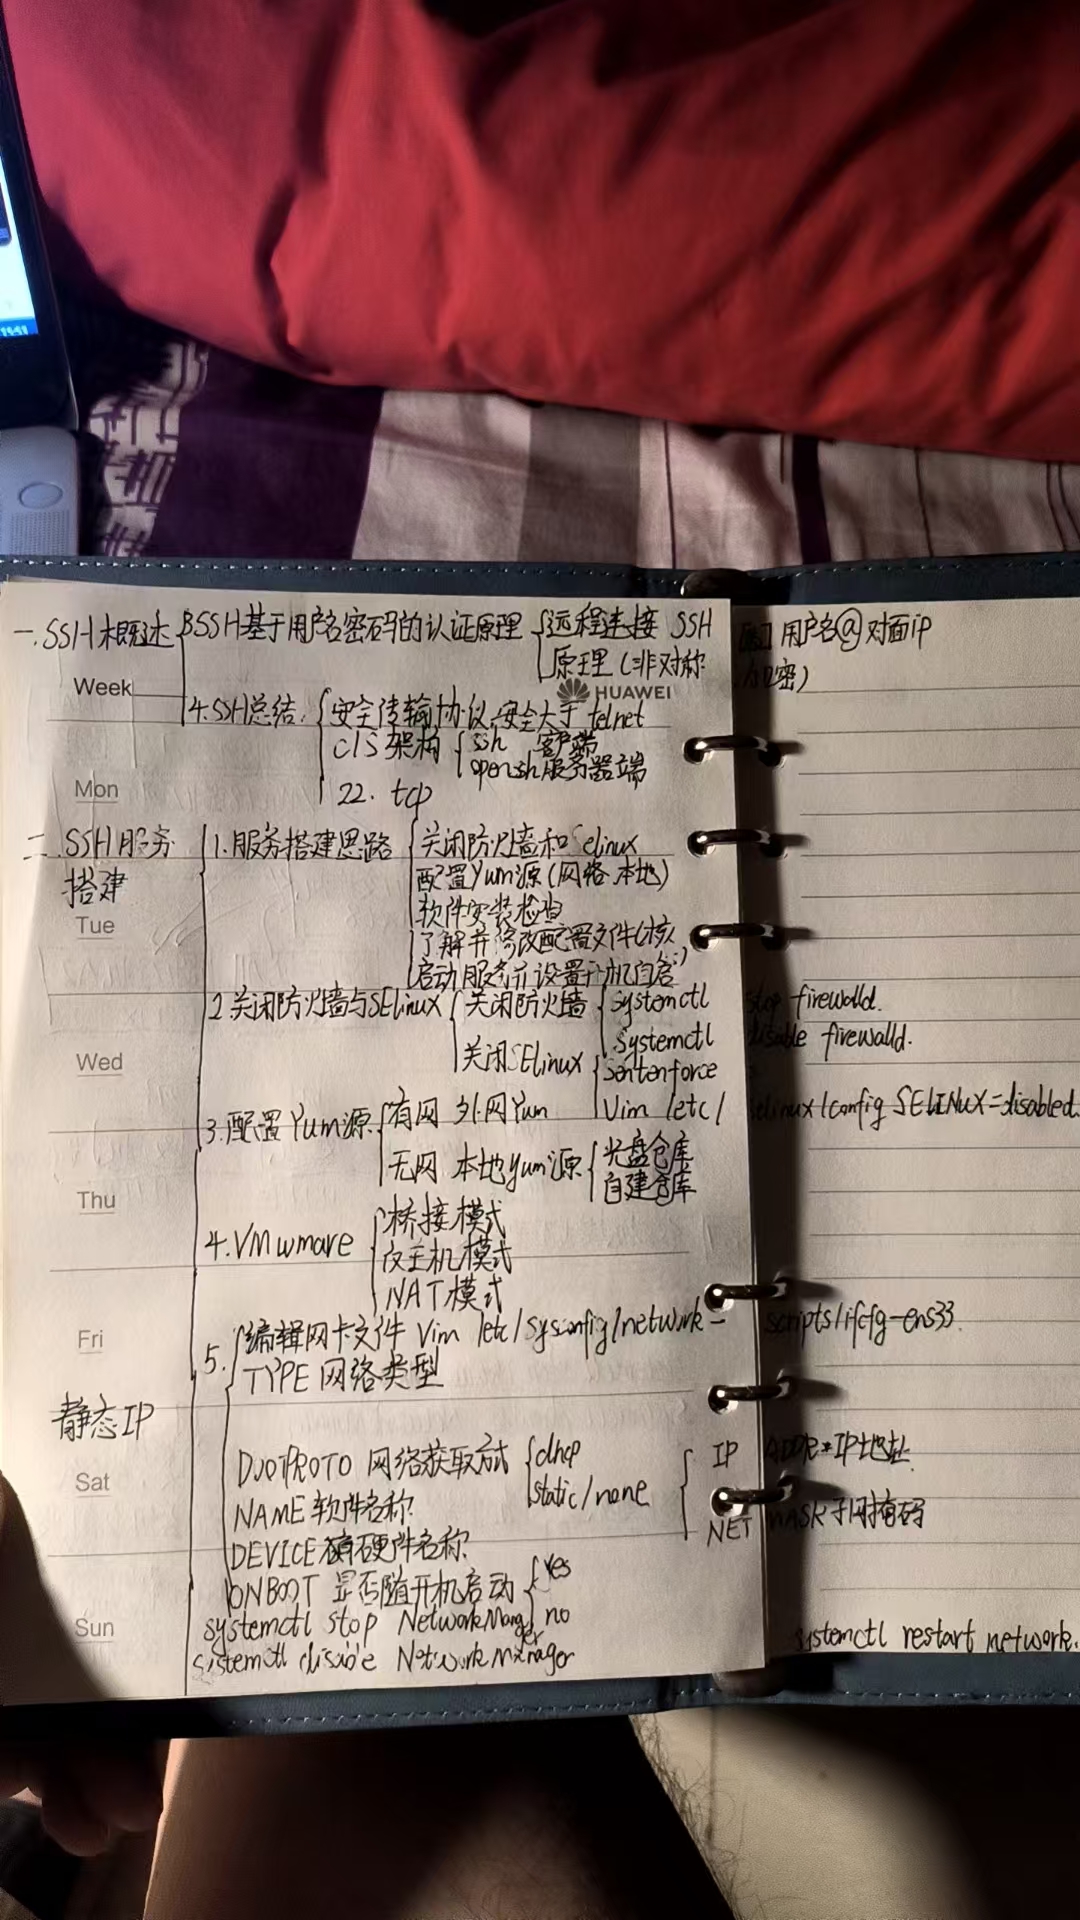 一.SSH概述
3SSH基于用户名密码的认证原理
远程连接 SSH
用户名@对面ip
原理(非对称
加密)
Week
HUAWEI
4.SSH总结
安全传输协议,安全大于telnet
C/S架构
ssh 客户端
openssh服务器端
22. tcp
Mon
二.SSH服务
搭建
1.服务搭建思路
关闭防火墙和Selinux
配置Yum源(网络 本地)
软件安装检查
了解并修改配置文件(核心)
启动服务并设置开机自启
Tue
2.关闭防火墙与SElinux
关闭防火墙
systemctl stop firewalld.
systemctl disable firewalld.
关闭SElinux
Vim /etc/selinux/config SELINUX=disabled.
Wed
3.配置Yum源
有网 外网Yum
无网 本地yum源
光盘仓库
自建仓库
Thu
4.VMwmare
桥接模式
仅主机模式
NAT模式
Fri
5.
编辑网卡文件 Vim /etc/sysconfig/network-scripts/ifcfg-ens33.
TYPE 网络类型
静态IP
网络获取方式
dhcp
static/none
IP ADDR=IP地址
NETMASK子网掩码
Sat
NAME 软件名称
DEVICE 硬件名称
ONBOOT 是否随开机启动
yes
no
Sun
systemctl stop NetworkManager
systemctl restart network.
sistemctl disable Networkmanager